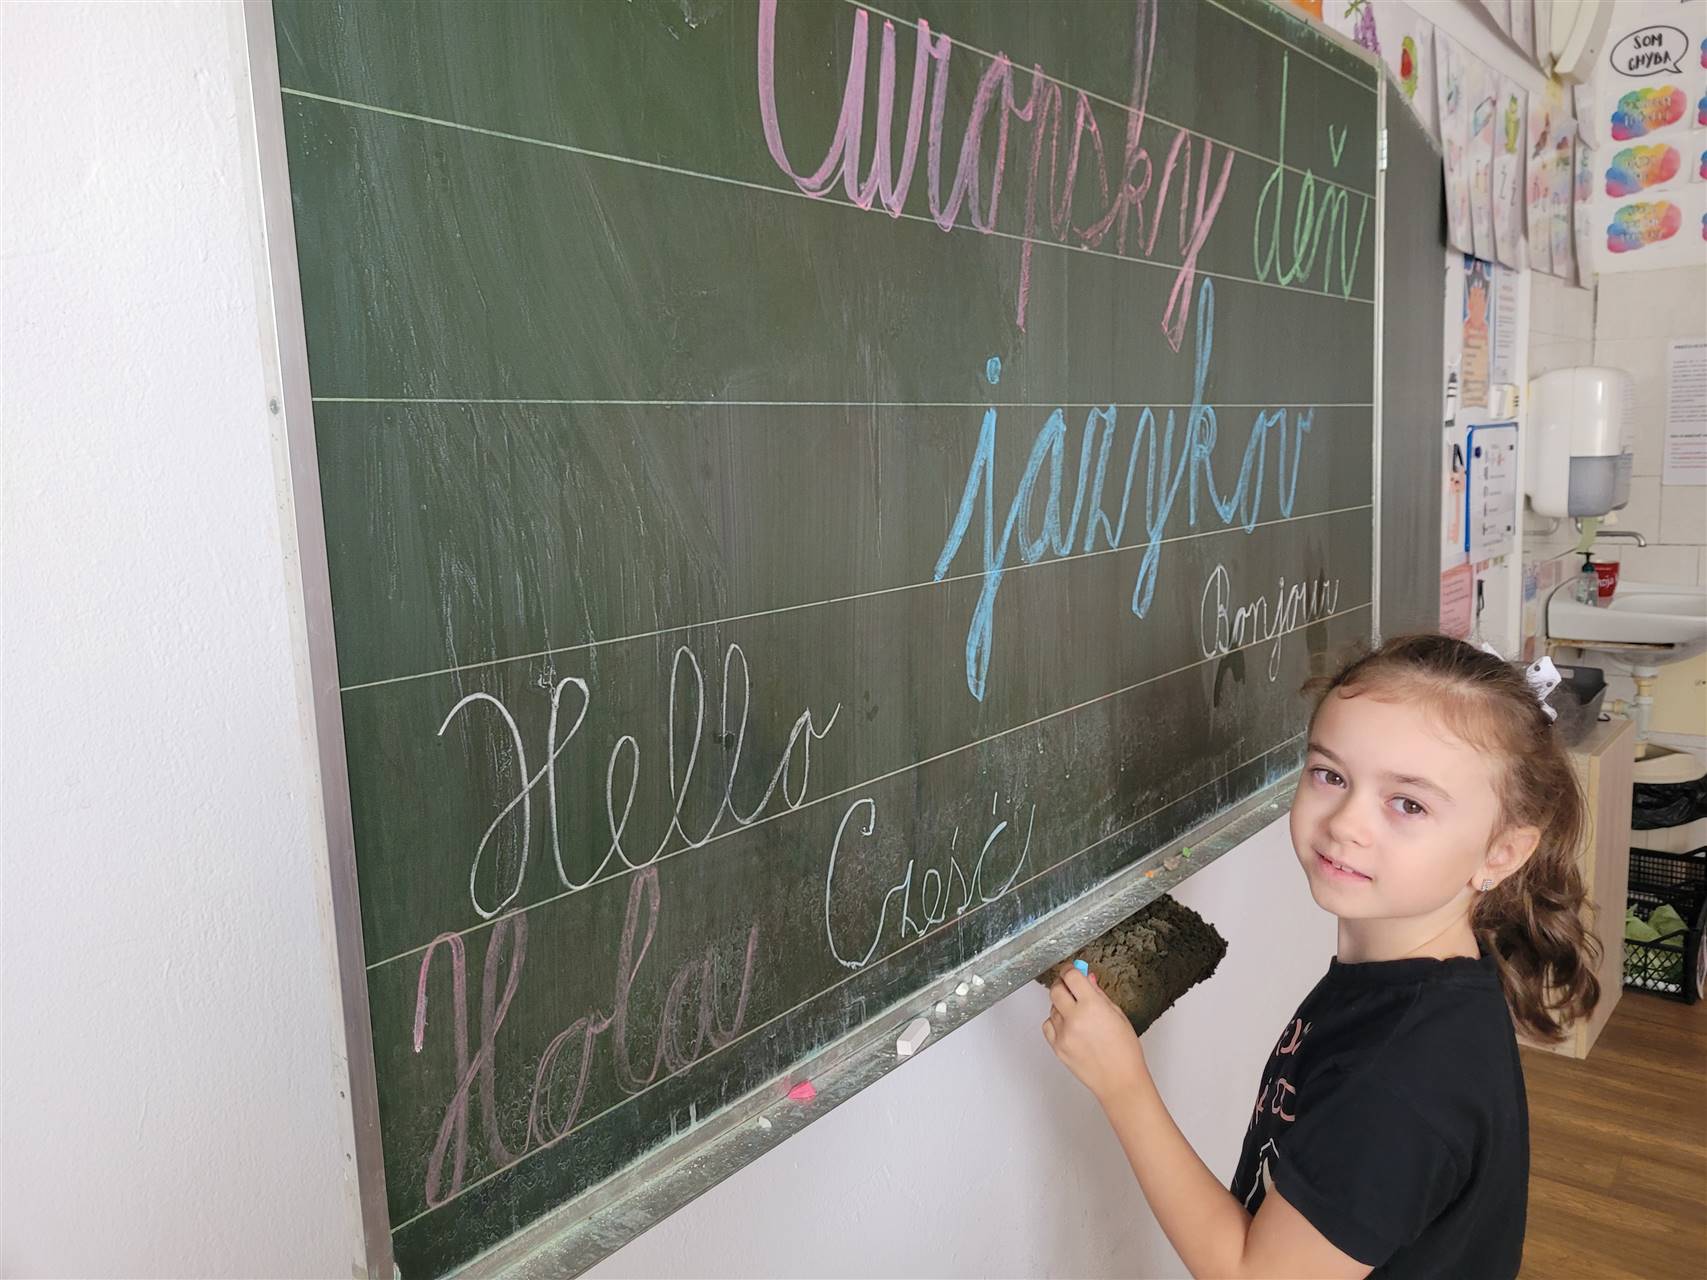 Európsky deň
jazykov
Bonjour
Hello
Cześć
Hola
SOM
CHYBA